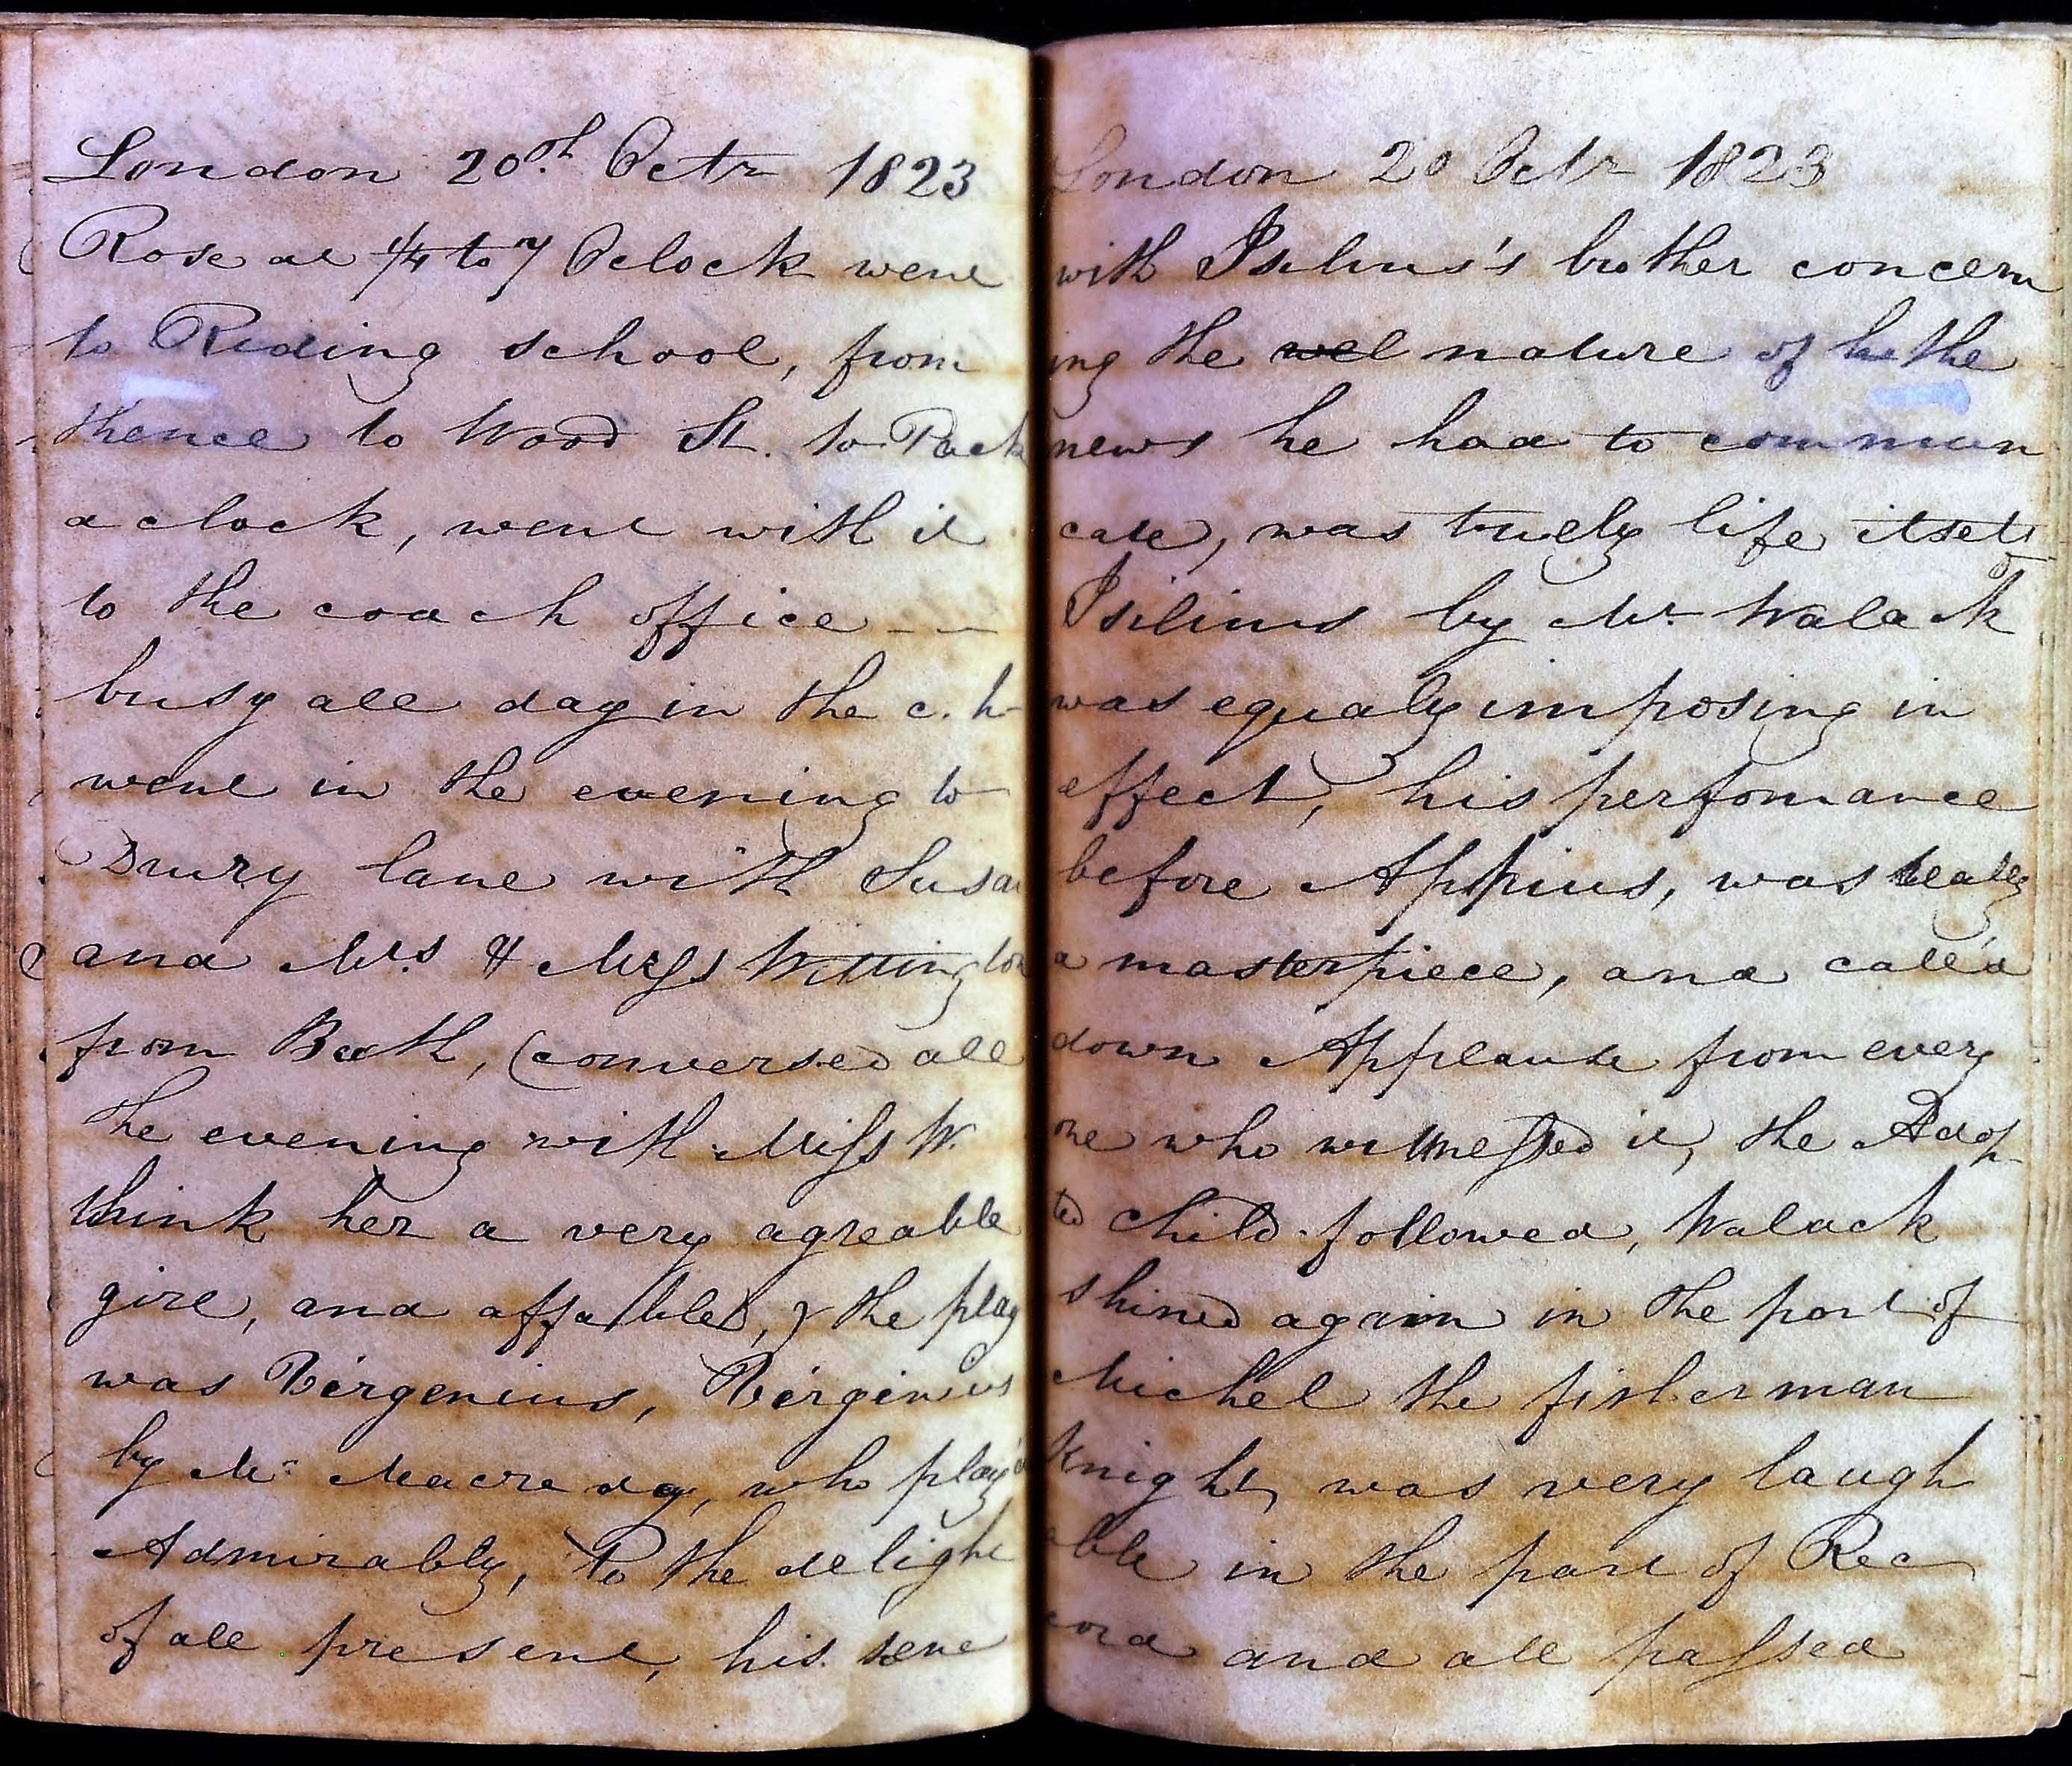 London 20th. Octr 1823
Rose at 1/4 to 7 Oclock went
to Riding school, from
thence to Wood St. to Pack
a clock, went with it
to the coach office - -
busy all day in the c. h-
went in the evening to
Drury lane with Susan
and Mrs & Miss Wittington
from Bath, (conversed all
the evening with Miss W.
think her a very agreable
girl, and affable,) the play
was Virgenius, Virginius
by Mr Macready, who play'd
Admirably, To the delight
of all present, his sene
London 20 Octr 1823
with Isilius's brother concern
ing the nature of the
news he had to commun
cate, was truely life itself
Isilius by Mr. Walack
was equaly imposing in
effect, his perfomance
before Appius, was realy
a masterpiece, and call'd
down Applause from every
one who witnessed it, the Adop
ted child followed, Walack
shined again in the part of
Michel the fisherman
Knight, was very laugh
able in the part of Rec
cord and all passed